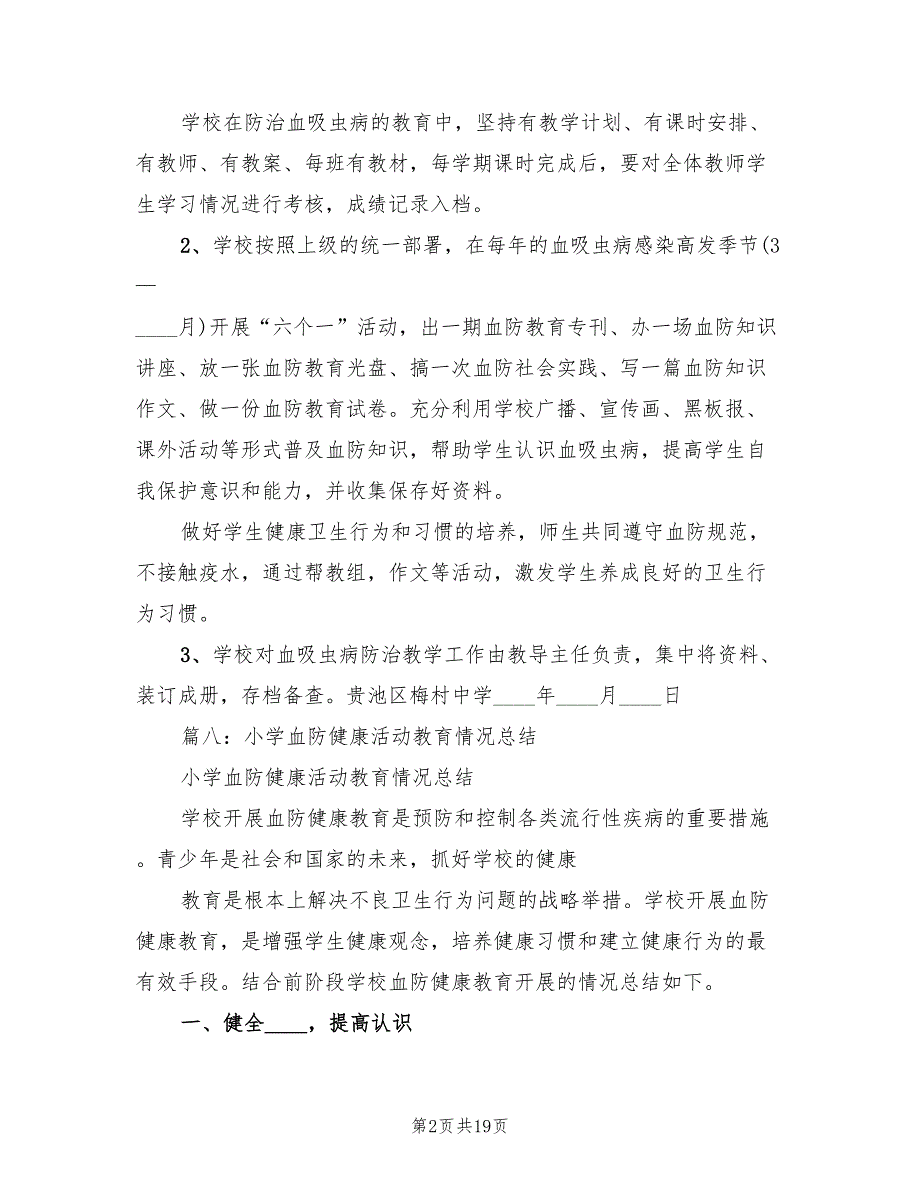 学校在防治血吸虫病的教育中，坚持有教学计划、有课时安排、
有教师、有教案、每班有教材，每学期课时完成后，要对全体教师学
生学习情况进行考核，成绩记录入档。
2、学校按照上级的统一部署，在每年的血吸虫病感染高发季节(3
—
____月)开展“六个一”活动，出一期血防教育专刊、办一场血防知识
讲座、放一张血防教育光盘、搞一次血防社会实践、写一篇血防知识
作文、做一份血防教育试卷。充分利用学校广播、宣传画、黑板报、
课外活动等形式普及血防知识，帮助学生认识血吸虫病，提高学生自
我保护意识和能力，并收集保存好资料。
做好学生健康卫生行为和习惯的培养，师生共同遵守血防规范，
不接触疫水，通过帮教组，作文等活动，激发学生养成良好的卫生行
为习惯。
3、学校对血吸虫病防治教学工作由教导主任负责，集中将资料、
装订成册，存档备查。贵池区梅村中学____年____月____日
篇八：小学血防健康活动教育情况总结
小学血防健康活动教育情况总结
学校开展血防健康教育是预防和控制各类流行性疾病的重要措施
。青少年是社会和国家的未来，抓好学校的健康
教育是根本上解决不良卫生行为问题的战略举措。学校开展血防
健康教育，是增强学生健康观念，培养健康习惯和建立健康行为的最
有效手段。结合前阶段学校血防健康教育开展的情况总结如下。
一、健全____，提高认识
第2页共19页